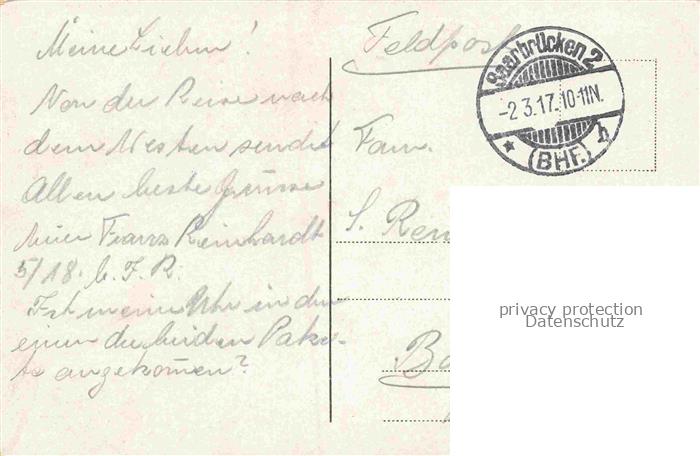 Meine Lieben!
Von der Reise nach
dem Westen sendet
Allen beste Grüsse
Euer Franz Reinhardt
5/18. b. J. R.
Ist meine Uhr in den
einen der beiden Pake-
te angekom̄en?
Feldpost
Saarbrücken 2
-2.3.17. 10-11N.
* (BHF.) h
Fam.
S. Rein
Ba
privacy protection
Datenschutz